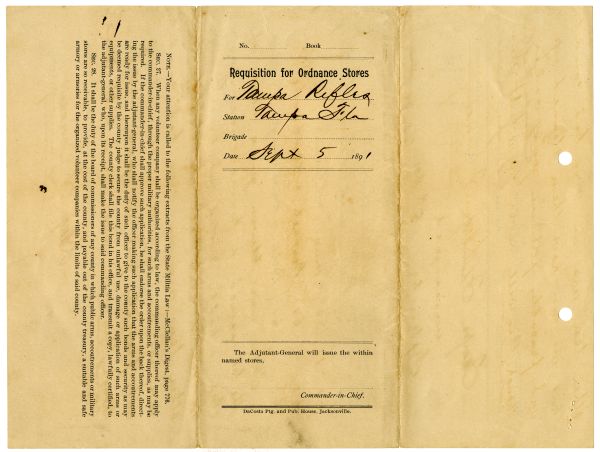 No. Book
Requisition for Ordnance Stores
For Tampa Rifles
Station Tampa Fla
Brigade
Date Sept 5 1891
The Adjutant-General will issue the within
named stores.
Commander-in-Chief.
DaCosta Ptg. and Pub. House, Jacksonville.
NOTE.—Your attention is called to the following extracts from the State Militia Law:—McClellan's Digest, page 778.
SEC. 27. When any volunteer company shall be organized according to law, the commanding officer thereof may apply
to the commander-in-chief, through the proper military authorities, for such arms and accoutrements, or supplies, as may be
required. If the commander-in-chief shall approve such application, he shall endorse the order upon the back thereof, direct-
ing the issue by the adjutant-general, who shall notify the officer making such application that the arms and accoutrements
are ready for issue, and thereupon it shall be the duty of such officer to give to the county such bonds and security as may
be deemed requisite by the county judge to secure the county from unlawful use, damage or application of such arms or
equipments, or other supplies. The county clerk shall file this bond in his office, and transmit a copy, lawfully certified, to
the adjutant-general, who, upon its receipt, shall make the issue to said commanding officer.
SEC. 28. It shall be the duty of the board of commissioners of any county in which public arms, accoutrements or military
stores are so receivable, to provide, at the cost of the county, and payable out of the county treasury, a suitable and safe
armory or armories for the organized volunteer companies within the limits of said county.